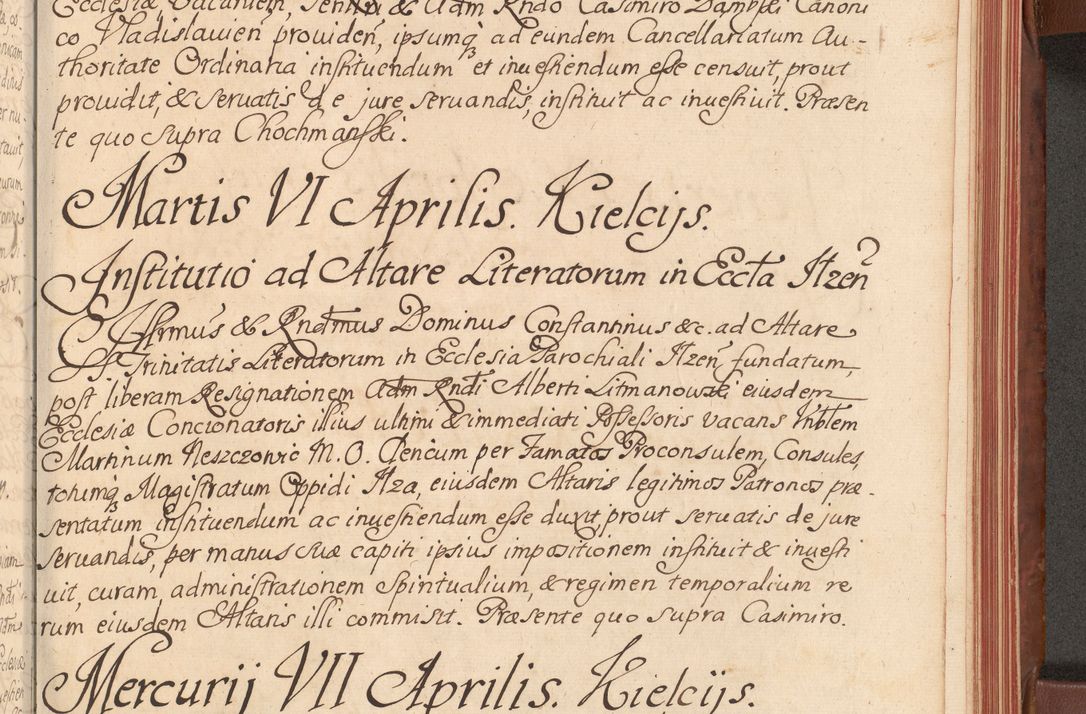 Ecclesiæ vacantem, & Adm Rndo Casimiro Dampski Canoni
co Vladislavien providen, ipsumq3 ad eundem Cancellariatum Au-
thoritate Ordinaria instituendum et investiendum esse censuit, prout
providit, & servatis de jure servandis, instituit ac investivit. Præsen
te quo supra Chochmański.
Martis VI Aprilis. Kielcijs.
Institutio ad Altare Literatorum in Eccta Ilzen
Illrmus & Rndmus Dominus Constantinus &c. ad Altare
SS Trinitatis Literatorum in Ecclesia Parochiali Ilzen fundatum,
post liberam Resignationem Adm Rndi Alberti Litmanowski eiusdem
Ecclesiæ Concionatoris illius ultimi & immediati Possessoris vacans Vnblem
Martinum Neszczonic M. O. Clericum per Famatos Proconsulem, Consules,
totumq3 Magistratum Oppidi Ilza, eiusdem Altaris legitimos Patronos præ-
sentatum instituendum ac investiendum esse duxit, prout servatis de jure
servandis, per manus suæ capiti ipsius impositionem instituit & investi
vit, curam, administrationem Spiritualium, & regimen temporalium re
rum eiusdem Altaris illi commisit. Præsente quo supra Casimiro.
Mercurij VII Aprilis. Kielcijs.